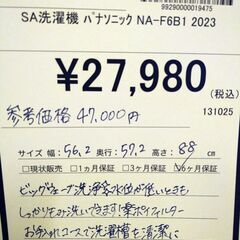 99290000019475
SA洗濯機 パナソニック NA-F6B1 2023
¥27,980
(税込)
参考価格 47,000円
131025
サイズ 幅:56.2 奥行:57.2 高さ:88 cm
□現状販売 □1ヵ月保証 □3ヶ月保証 ☑6ヶ月保証
ビッグウェーブ洗浄☆水位が低いときも
しっかりもみ洗いできます!楽ポイフィルター
お手入れコースで洗濯槽を清潔に